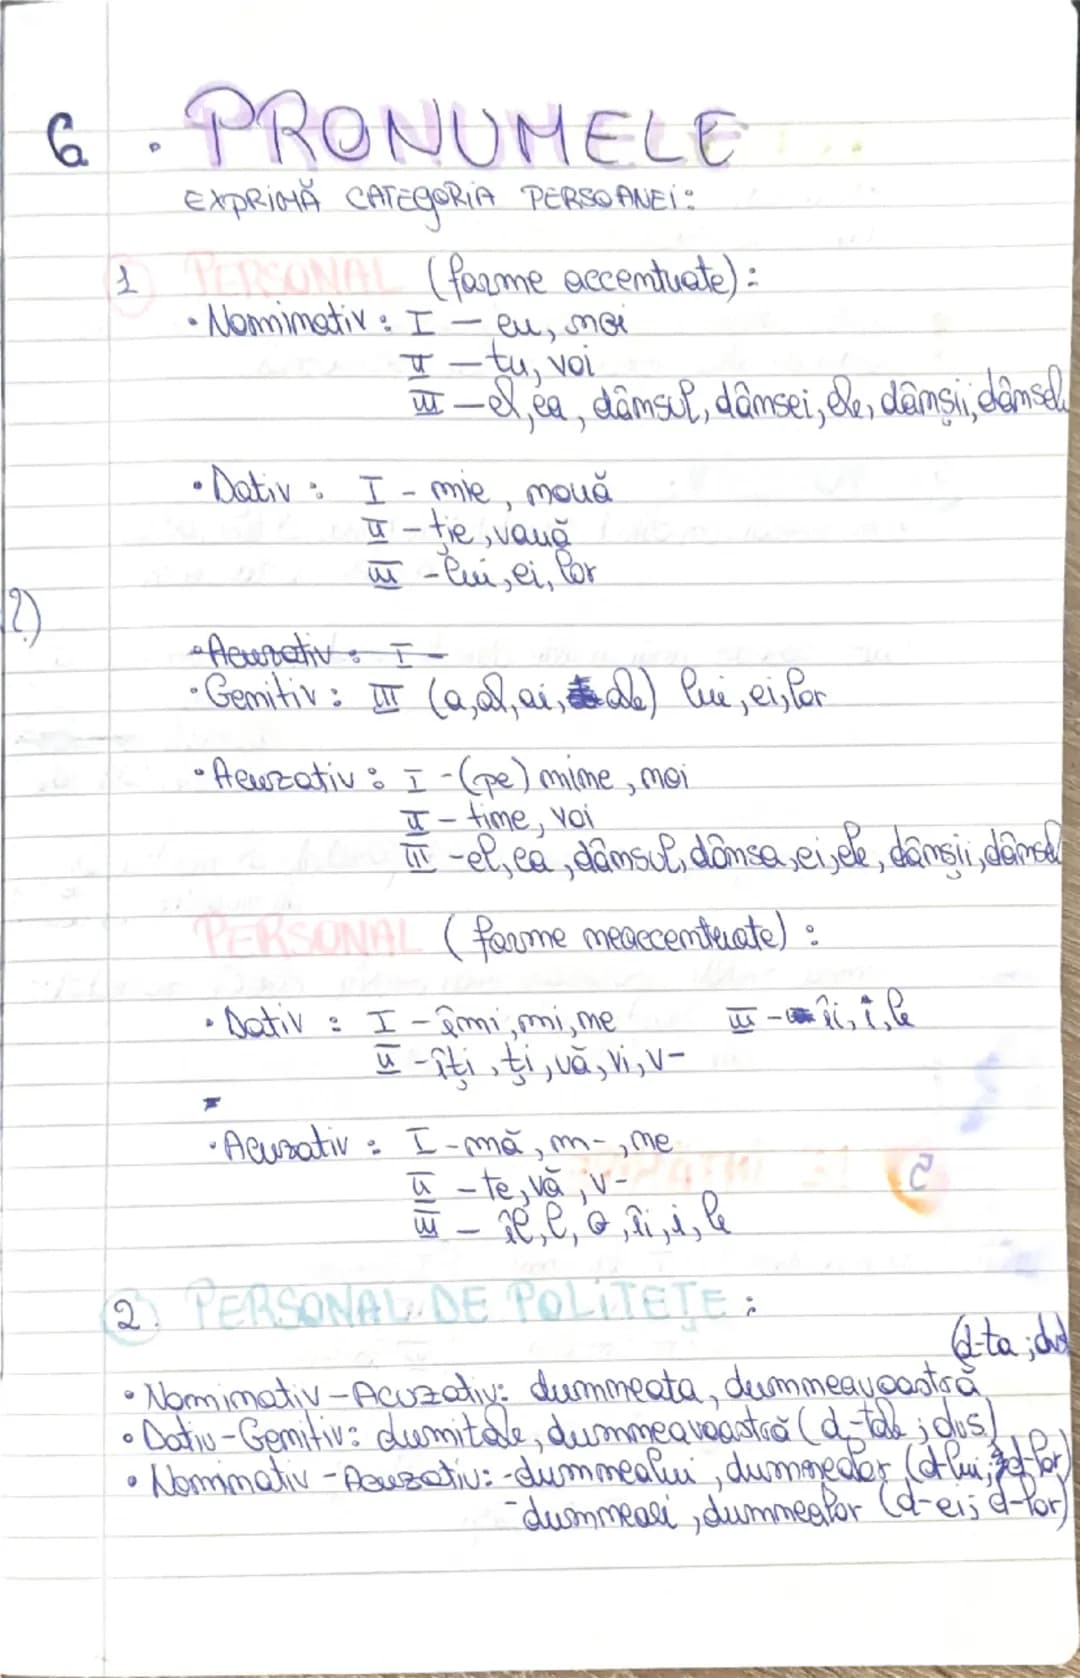 6. PRONUMELE
EXPRIMĂ CATEGORIA PERSOANEI:
1 PERSONAL (forme accentuate):
• Nominativ: I – eu, noi
II – tu, voi
III – el, ea, dânsul, dânsei, ele, dânșii, dânsele
• Dativ: I – mie, nouă
II – ție, vouă
III – lui, ei, lor
2)
• Acuzativ: I –
• Genitiv: III (a, al, ai, ale) lui, ei, lor
• Acuzativ: I – (pe) mine, noi
II – tine, voi
III – el, ea, dânsul, dânsa, ei, ele, dânșii, dânsel
PERSONAL (forme neaccentuate):
• Dativ: I – îmi, mi, ne III – îi, i, le
II – îți, ți, vă, vi, v-
• Acuzativ: I – mă, m-, ne
II – te, vă, v-
III – îl, l, o, îi, i, le
2. PERSONAL DE POLITEȚE:
(d-ta; dvs
• Nominativ – Acuzativ: dumneata, dumneavoastră
• Dativ – Genitiv: dumitale, dumneavoastră (d-tale; dvs.)
• Nominativ – Acuzativ: - dumnealui, dumnealor (d-lui; d-lor)
- dumneaei, dumnealor (d-ei; d-lor)